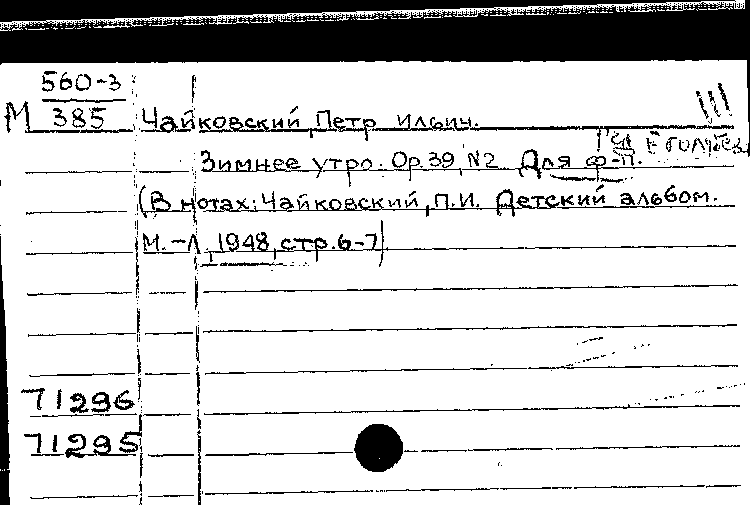 560-3
М 385
Чайковский, Петр Ильич.
III
Зимнее утро. Op.39, №2. Для ф-п.
(В нотах: Чайковский, П.И. Детский альбом.
М.-Л., 1948, стр.6-7)
71296
71295